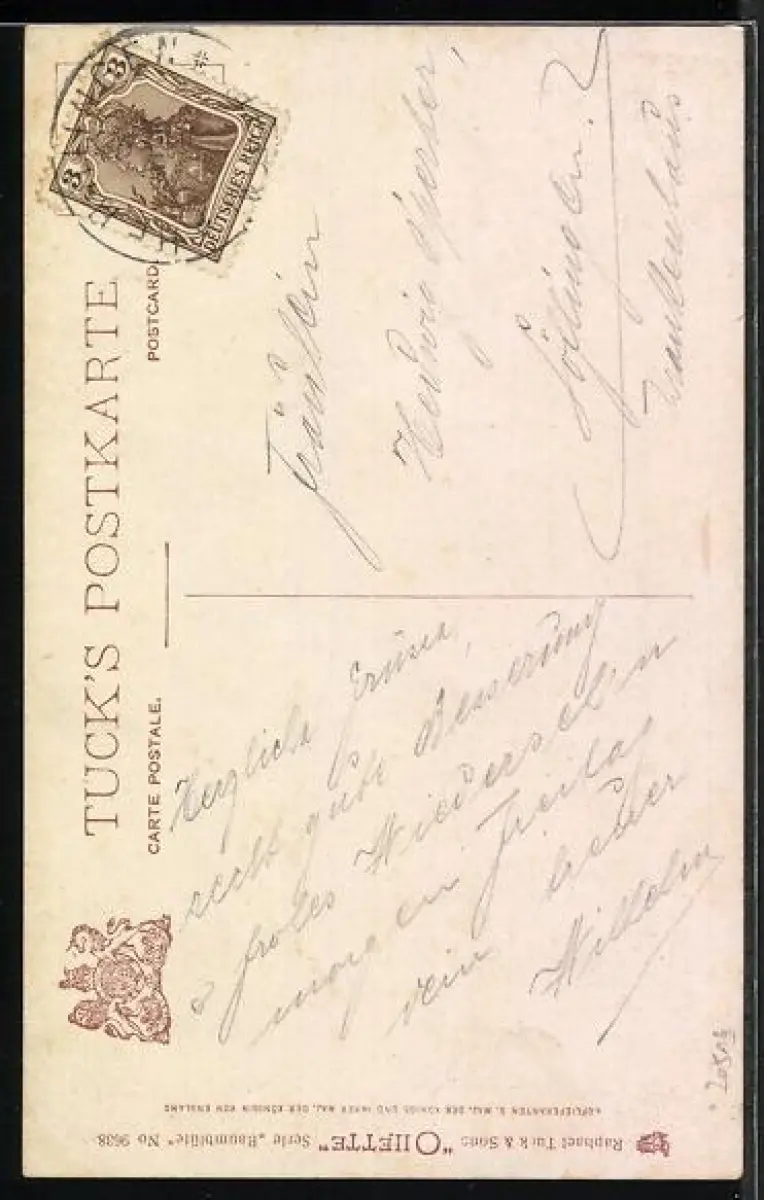 TUCK'S POSTKARTE
CARTE POSTALE. POSTCARD.
3 3
DEUTSCHES REICH
Herzliche Grüsse,
recht gute Besserung
frohes Wiedersehn
morgen Freitag
dein lieber
Wilhelm
Fräulein
Hedwig
Krankenhaus
Raphael Tuck & Sons "OILETTE" Serie „Baumblüte" No 9638
HOFLIEFERANTEN S. MAJ. DER KÖNIGS UND IHRER MAJ. DER KÖNIGIN VON ENGLAND